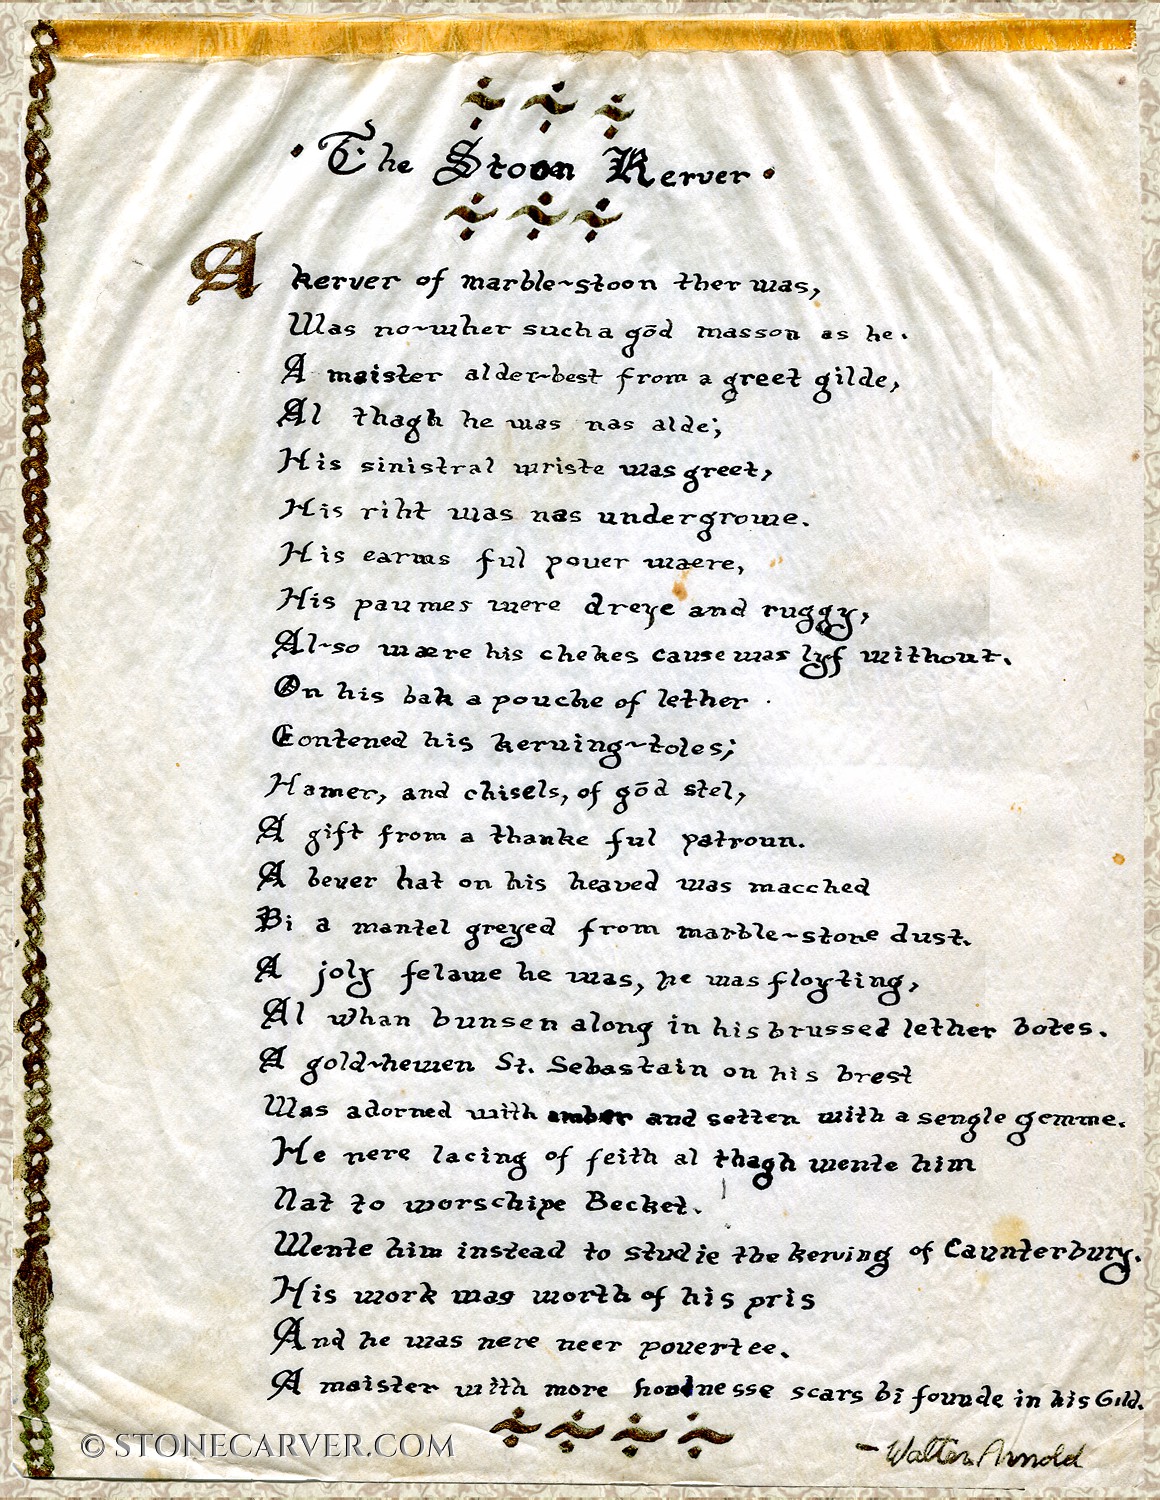 · The Stoon Kerver ·
A kerver of marble~stoon ther was,
Was no~wher such a gōd masson as he.
A maister alder~best from a greet gilde,
Al thagh he was nas alde;
His sinistral wriste was greet,
His riht was nas undergrowe.
His earms ful pouer waere,
His paumes were dreye and ruggy,
Al~so wære his chekes cause was lyf without.
On his bak a pouche of lether
Contened his keruing~toles;
Hamer, and chisels, of gōd stel,
A gift from a thanke ful patroun.
A bever hat on his heaved was macched
Bi a mantel greyed from marble~stone dust.
A joly felawe he was, he was floyting,
Al whan bunsen along in his brussed lether botes.
A gold~hewen St. Sebastain on his brest
Was adorned with amber and setten with a sengle gemme.
He nere lacing of feith al thagh wente him
Nat to worschipe Becket.
Wente him instead to studie the kerving of Caunterbury.
His work was worth of his pris
And he was nere neer povertee.
A maister with more hordnesse scars bi founde in his Gild.
~Walter Arnold
© STONECARVER.COM